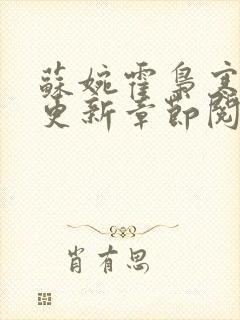 蘇婉霍梟寒
更新章節閱
肖有思